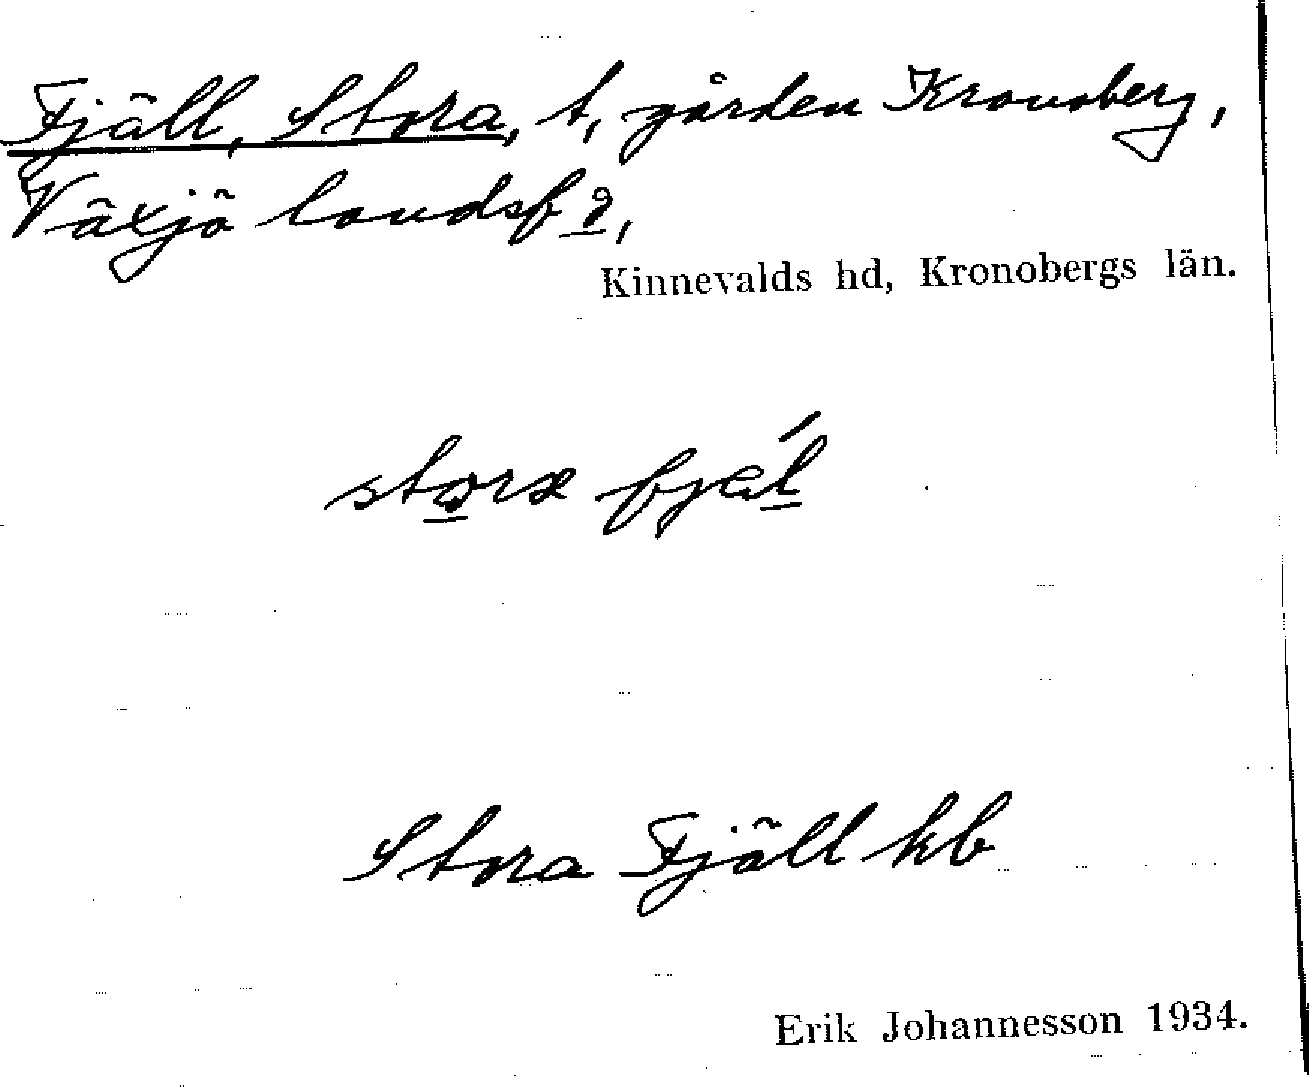 Fjäll, Stora, t, gården Kronoberg,
Växjö landsf
Kinnevalds hd, Kronobergs län.
Stora Fjäll kb
Erik Johannesson 1934.